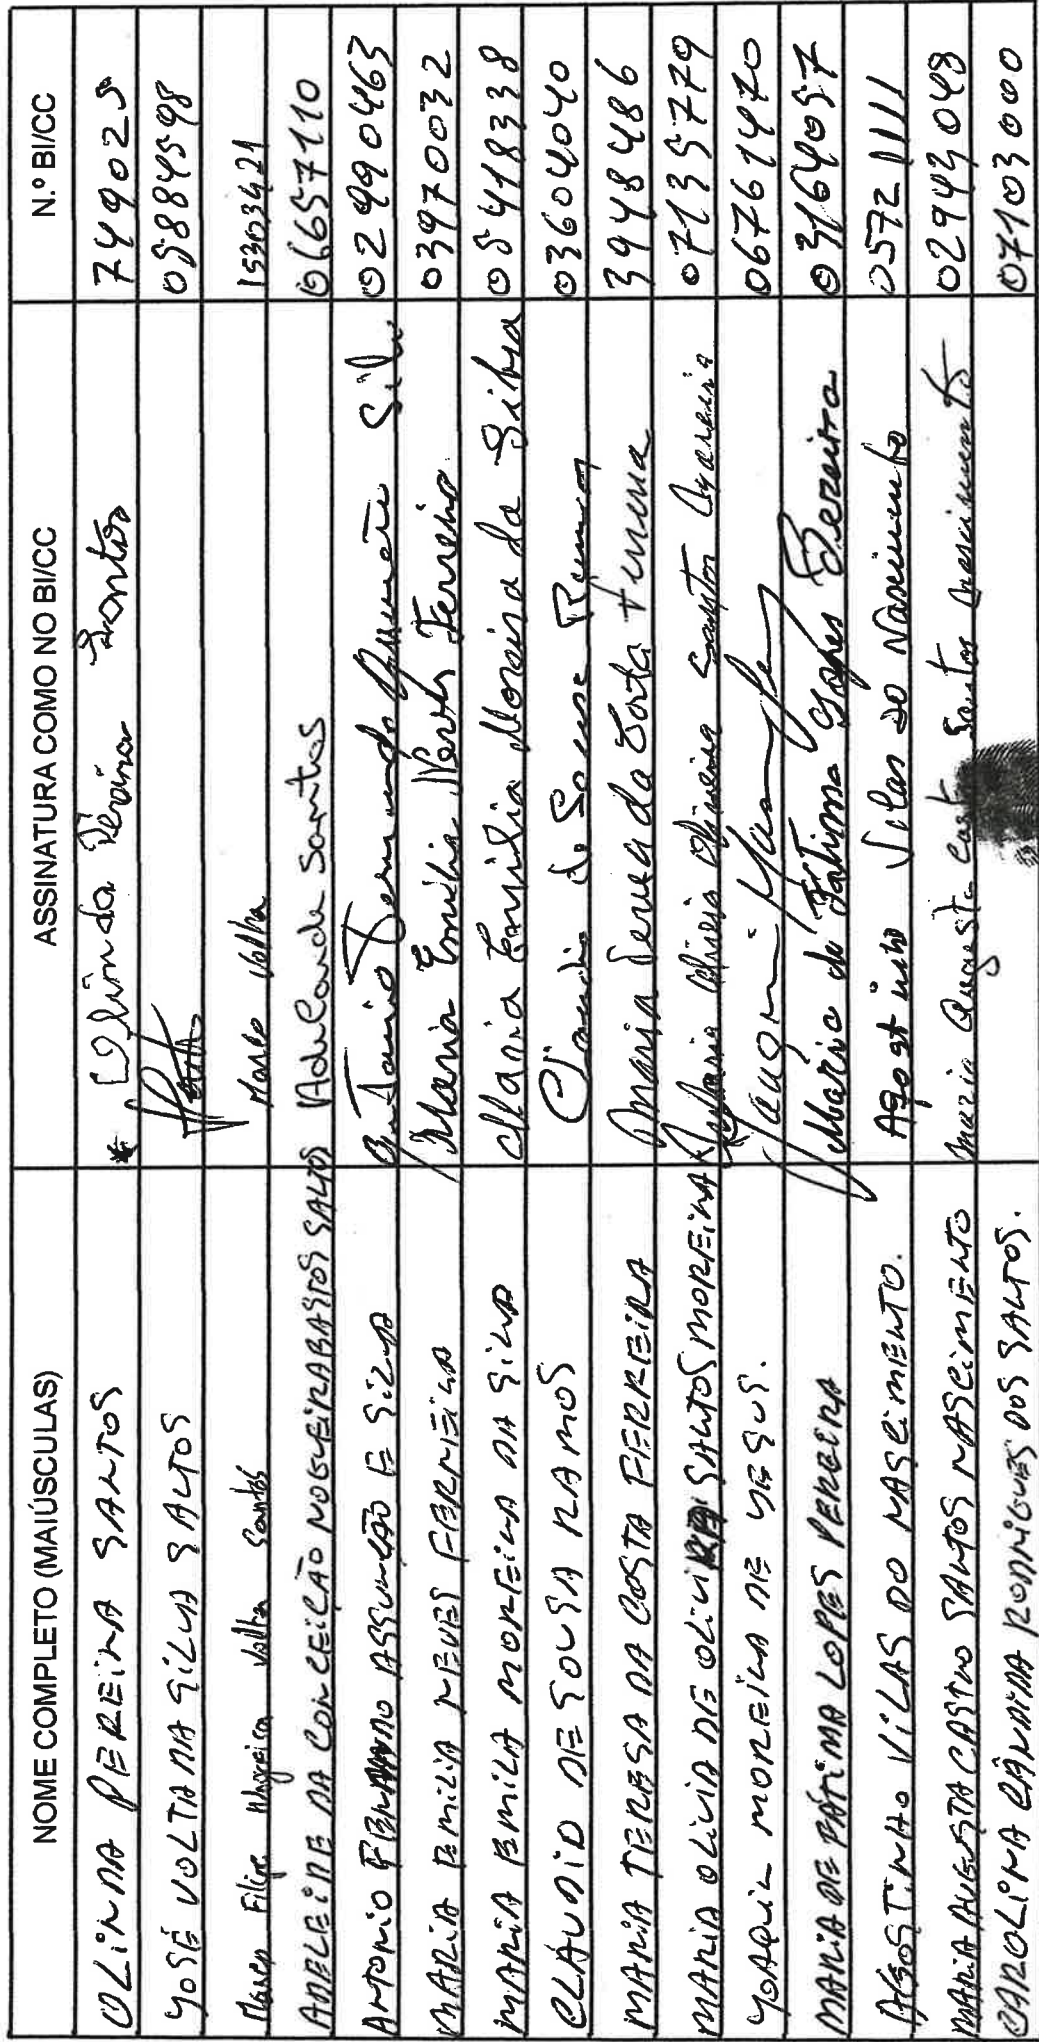 NOME COMPLETO (MAIÚSCULAS) ASSINATURA COMO NO BI/CC N.º BI/CC
OLINDA PEREIRA SANTOS Olinda Pereira Santos 7449025
JOSÉ VOLTA DA SILVA SANTOS 05884598
Marco Filipe Volta Santos Marco Volta 15303421
ADELEIDE DA CONCEIÇÃO NOGUEIRA BASTOS SANTOS Adelaide Santos 06657110
ANTONIO FERNANDO ASSUNÇÃO E SILVA Antonio Fernando Silva 02990463
MARIA EMILIA NEVES FERREIRA Maria Emilia Neves Ferreira 03970032
MARIA EMILA MOREIRA DA SILVA Maria Emilia Moreira da Silva 05418338
CLÁUDIO DE SOUSA RAMOS Claudio de Sousa Ramos 03604040
MARIA TERESA DA COSTA FERREIRA Maria Teresa da Costa Ferreira 3948486
MARIA OLIVIA DE OLIVEIRA SANTOS MOREIRA Maria Olivia Oliveira Santos Moreira 07135779
JOAQUIM MOREIRA DE JESUS. 06761470
MARIA DE FÁTIMA LOPES PEREIRA Maria de Fátima Lopes Pereira 03164057
AGOSTINHO VILAS DO NASCIMENTO. Agostinho Vilas do Nascimento 05721111
MARIA AUGUSTA CASTRO SANTOS NASCIMENTO Maria Augusta Castro Santos Nascimento 02943048
CAROLINA CÂNDIDA RODRIGUES DOS SANTOS. 07103000